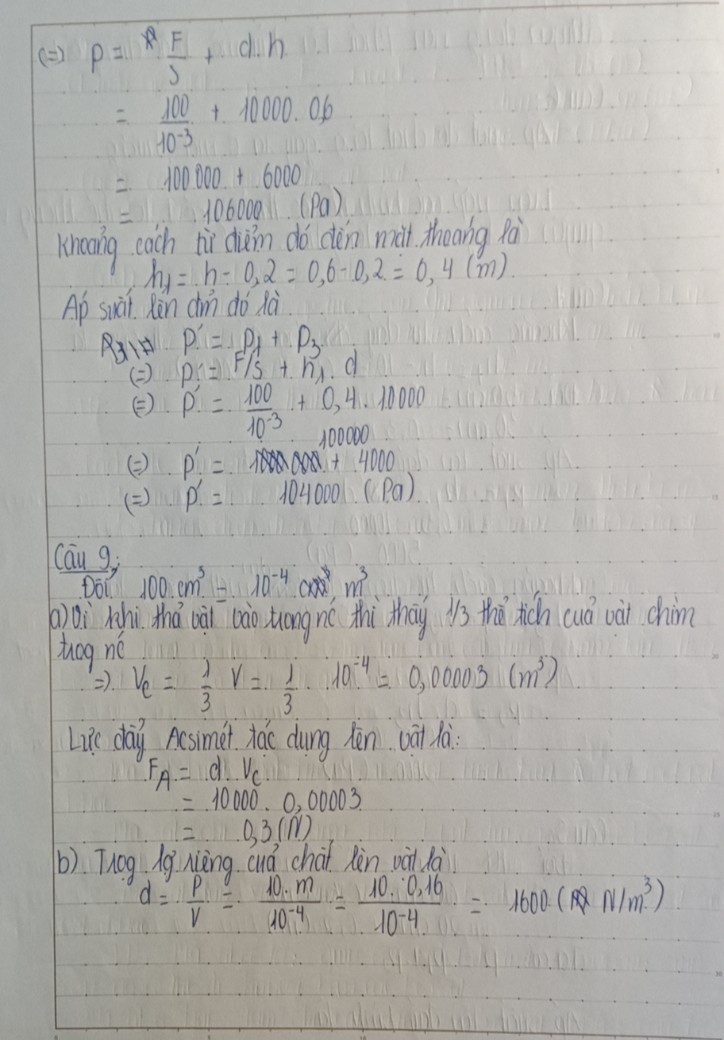 (=) p = F/S + d.h
= 100/10⁻³ + 10000. 0,6
= 100 000 + 6000
= 106000 (Pa)
Khoảng cách từ điểm đó đến mặt thoáng là
h₁ = h - 0,2 = 0,6 - 0,2 = 0,4 (m)
Áp suất lên điểm đó là
p' = p₁ + p₃
(=) p' = F/S + h₁ d
(=) p' = 100/10⁻³ + 0,4. 10000
(=) p' = 100000 + 4000
(=) p' = 104000 (Pa)
Câu 9:
Đổi 100 cm³ = 10⁻⁴ m³
a) Vì khi thả vật vào trong nc thì thấy 1/3 thể tích của vật chìm
trog nc
=) Vc = 1/3 V = 1/3 . 10⁻⁴ = 0,00003 (m³)
Lực đẩy Acsimét tác dụng lên vật là:
FA = d. Vc
= 10000. 0,00003
= 0,3 (N)
b) Trọg lg riêng của chất làm vật là
d = P/V = 10.m/10⁻⁴ = 10. 0,16/10⁻⁴ = 1600 (N/m³)